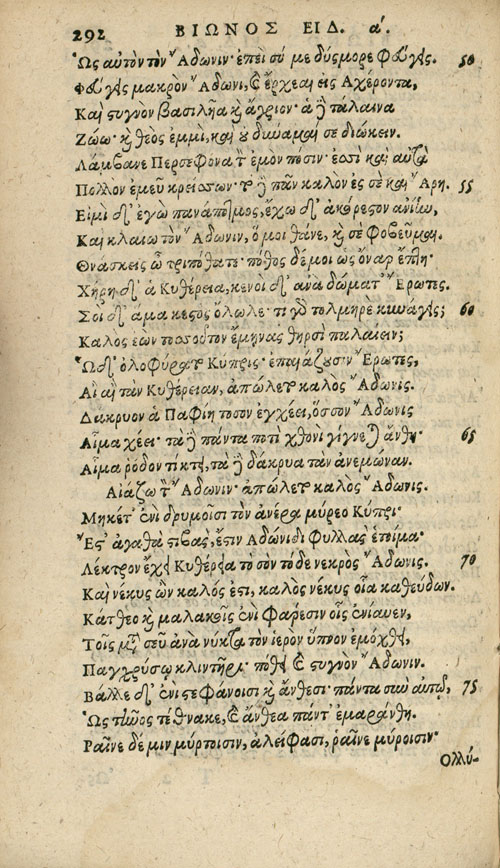 292 ΒΙΩΝΟΣ ΕΙΔ. ά.
Ὡς αὐτὸν τὸν Ἄδωνιν· ἐπεὶ σύ με δύσμορε φεύγεις. 50
Φεύγεις μακρὸν Ἄδωνι, καὶ ἔρχεαι εἰς Ἀχέροντα,
Καὶ στυγνὸν βασιλῆα καὶ ἄγριον· ἁ δὲ τάλαινα
Ζώω· καὶ θεὸς ἐμμὶ, καὶ οὐ δύναμαι σε διώκειν.
Λάμβανε Περσεφόνα τὸν ἐμὸν πόσιν· ἐσσὶ καὶ αὐτὰ
Πολλὸν ἐμεῦ κρείσσων· τὸ δὲ πᾶν καλὸν ἐς σὲ καὶ Ἄρη. 55
Εἰμὶ δ' ἐγὼ πανάποτμος, ἔχω δ' ἀκόρεστον ἀνίην,
Καὶ κλαίω τὸν Ἄδωνιν, ὅ μοι θάνε, καὶ σὲ φοβεῦμαι.
Θνάσκεις ὦ τριπόθατε· πόθος δέ μοι ὡς ὄναρ ἔπτη·
Χήρη δ' ἁ Κυθέρεια, κενοὶ δ' ἀνὰ δώματ' Ἔρωτες.
Σοὶ δ' ἅμα κεστὸς ὄλωλε· τί γὰρ τολμηρὲ κυνάγεις; 60
Καλὸς ἐὼν τοσσοῦτον ἔμηνας θηρσὶ παλαίειν;
Ὧδ' ὀλοφύρατο Κύπρις· ἐπαιάζουσιν Ἔρωτες,
Αἲ αἲ τὰν Κυθέρειαν, ἀπώλετο καλὸς Ἄδωνις.
Δάκρυον ἁ Παφίη τόσον ἐγχέει, ὅσσον Ἄδωνις
Αἷμα χέει· τὰ δὲ πάντα ποτὶ χθονὶ γίγνεται ἄνθη· 65
Αἷμα ῥόδον τίκτει, τὰ δὲ δάκρυα τὰν ἀνεμώναν.
Αἰάζω τὸν Ἄδωνιν· ἀπώλετο καλὸς Ἄδωνις.
Μηκέτ' ἐνὶ δρυμοῖσι τὸν ἀνέρα μύρεο Κύπρι·
Ἔς' ἀγαθὰ στιβὰς, ἔστιν Ἀδώνιδι φυλλὰς ἑτοίμα·
Λέκτρον ἔχει Κυθέρεια τὸ σὸν τόδε νεκρὸς Ἄδωνις. 70
Καὶ νέκυς ὢν καλός ἐστι, καλὸς νέκυς οἷα καθεύδων.
Κάτθεο καὶ μαλακοῖς ἐνὶ φάρεσιν οἷς ἐνίαυεν,
Τοῖς μετὰ σεῦ ἀνὰ νύκτα τὸν ἱερὸν ὕπνον ἐμόχθει,
Παγχρύσῳ κλιντῆρι· πόθει καὶ στυγνὸν Ἄδωνιν.
Βάλλε δ' ἐνὶ στεφάνοισι καὶ ἄνθεσι· πάντα σὺν αὐτῷ, 75
Ὡς τῆνος τέθνακε, καὶ ἄνθεα πάντ' ἐμαράνθη.
Ραῖνε δέ μιν μύρτοισιν, ἀλείφασι, ῥαῖνε μύροισιν·
Ολλύ-